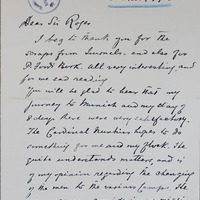 Dear Sir Roger
I beg to thank you for the
scraps from and also for
P. Fords Book. All very interesting, and
for me can reading
You will be glad to hear that my
journey to Munich and my stay of
8 days there were very satisfactory.
The Cardinal Nuntius hopes to do
something for me and my flock. He
quite understands matters, and is
of my opinion regarding the changing
of the men to the various camps. He